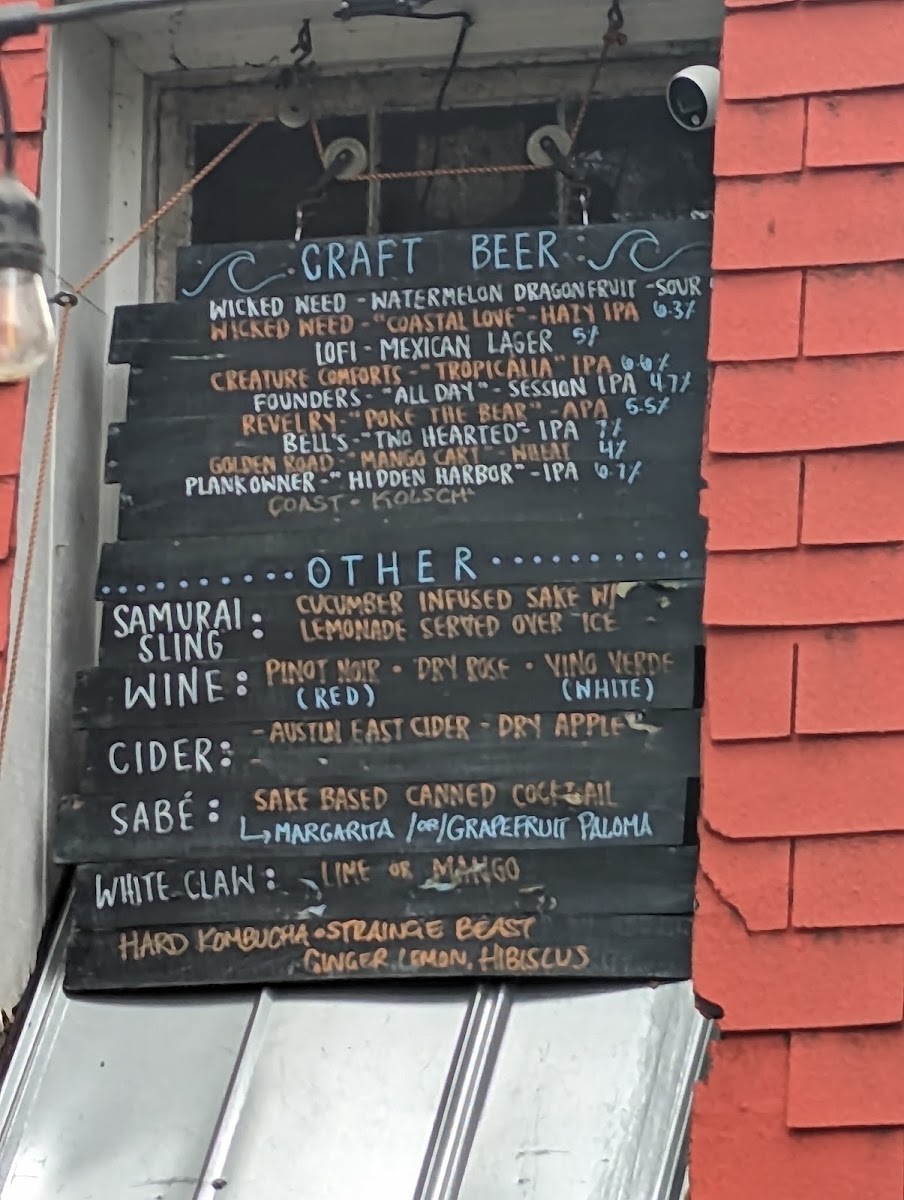 CRAFT BEER
WICKED WEED - WATERMELON DRAGONFRUIT - SOUR
WICKED WEED - "COASTAL LOVE" - HAZY IPA 6.3%
LOFI - MEXICAN LAGER 5%
CREATURE COMFORTS - "TROPICALIA" IPA 6.6%
FOUNDERS - "ALL DAY" - SESSION IPA 4.7%
REVELRY - "POKE THE BEAR" - APA 5.5%
BELL'S - "TWO HEARTED" - IPA 7%
GOLDEN ROAD - "MANGO CART" - WHEAT 4%
PLANKOWNER - "HIDDEN HARBOR" - IPA 6.7%
COAST - KOLSCH
OTHER
SAMURAI SLING: CUCUMBER INFUSED SAKE W/
LEMONADE SERVED OVER ICE
WINE: PINOT NOIR • DRY ROSE • VINO VERDE
(RED) (WHITE)
CIDER: - AUSTIN EAST CIDER - DRY APPLE
SABÉ: SAKE BASED CANNED COCKTAIL
MARGARITA /OR/ GRAPEFRUIT PALOMA
WHITE CLAW: LIME OR MANGO
HARD KOMBUCHA • STRAINGE BEAST
GINGER, LEMON, HIBISCUS